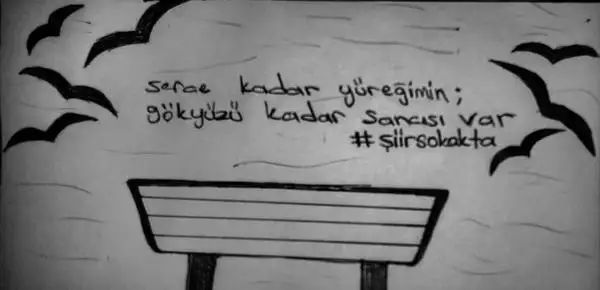 serçe kadar yüreğimin;
gökyüzü kadar sancısı var
#şiirsokakta